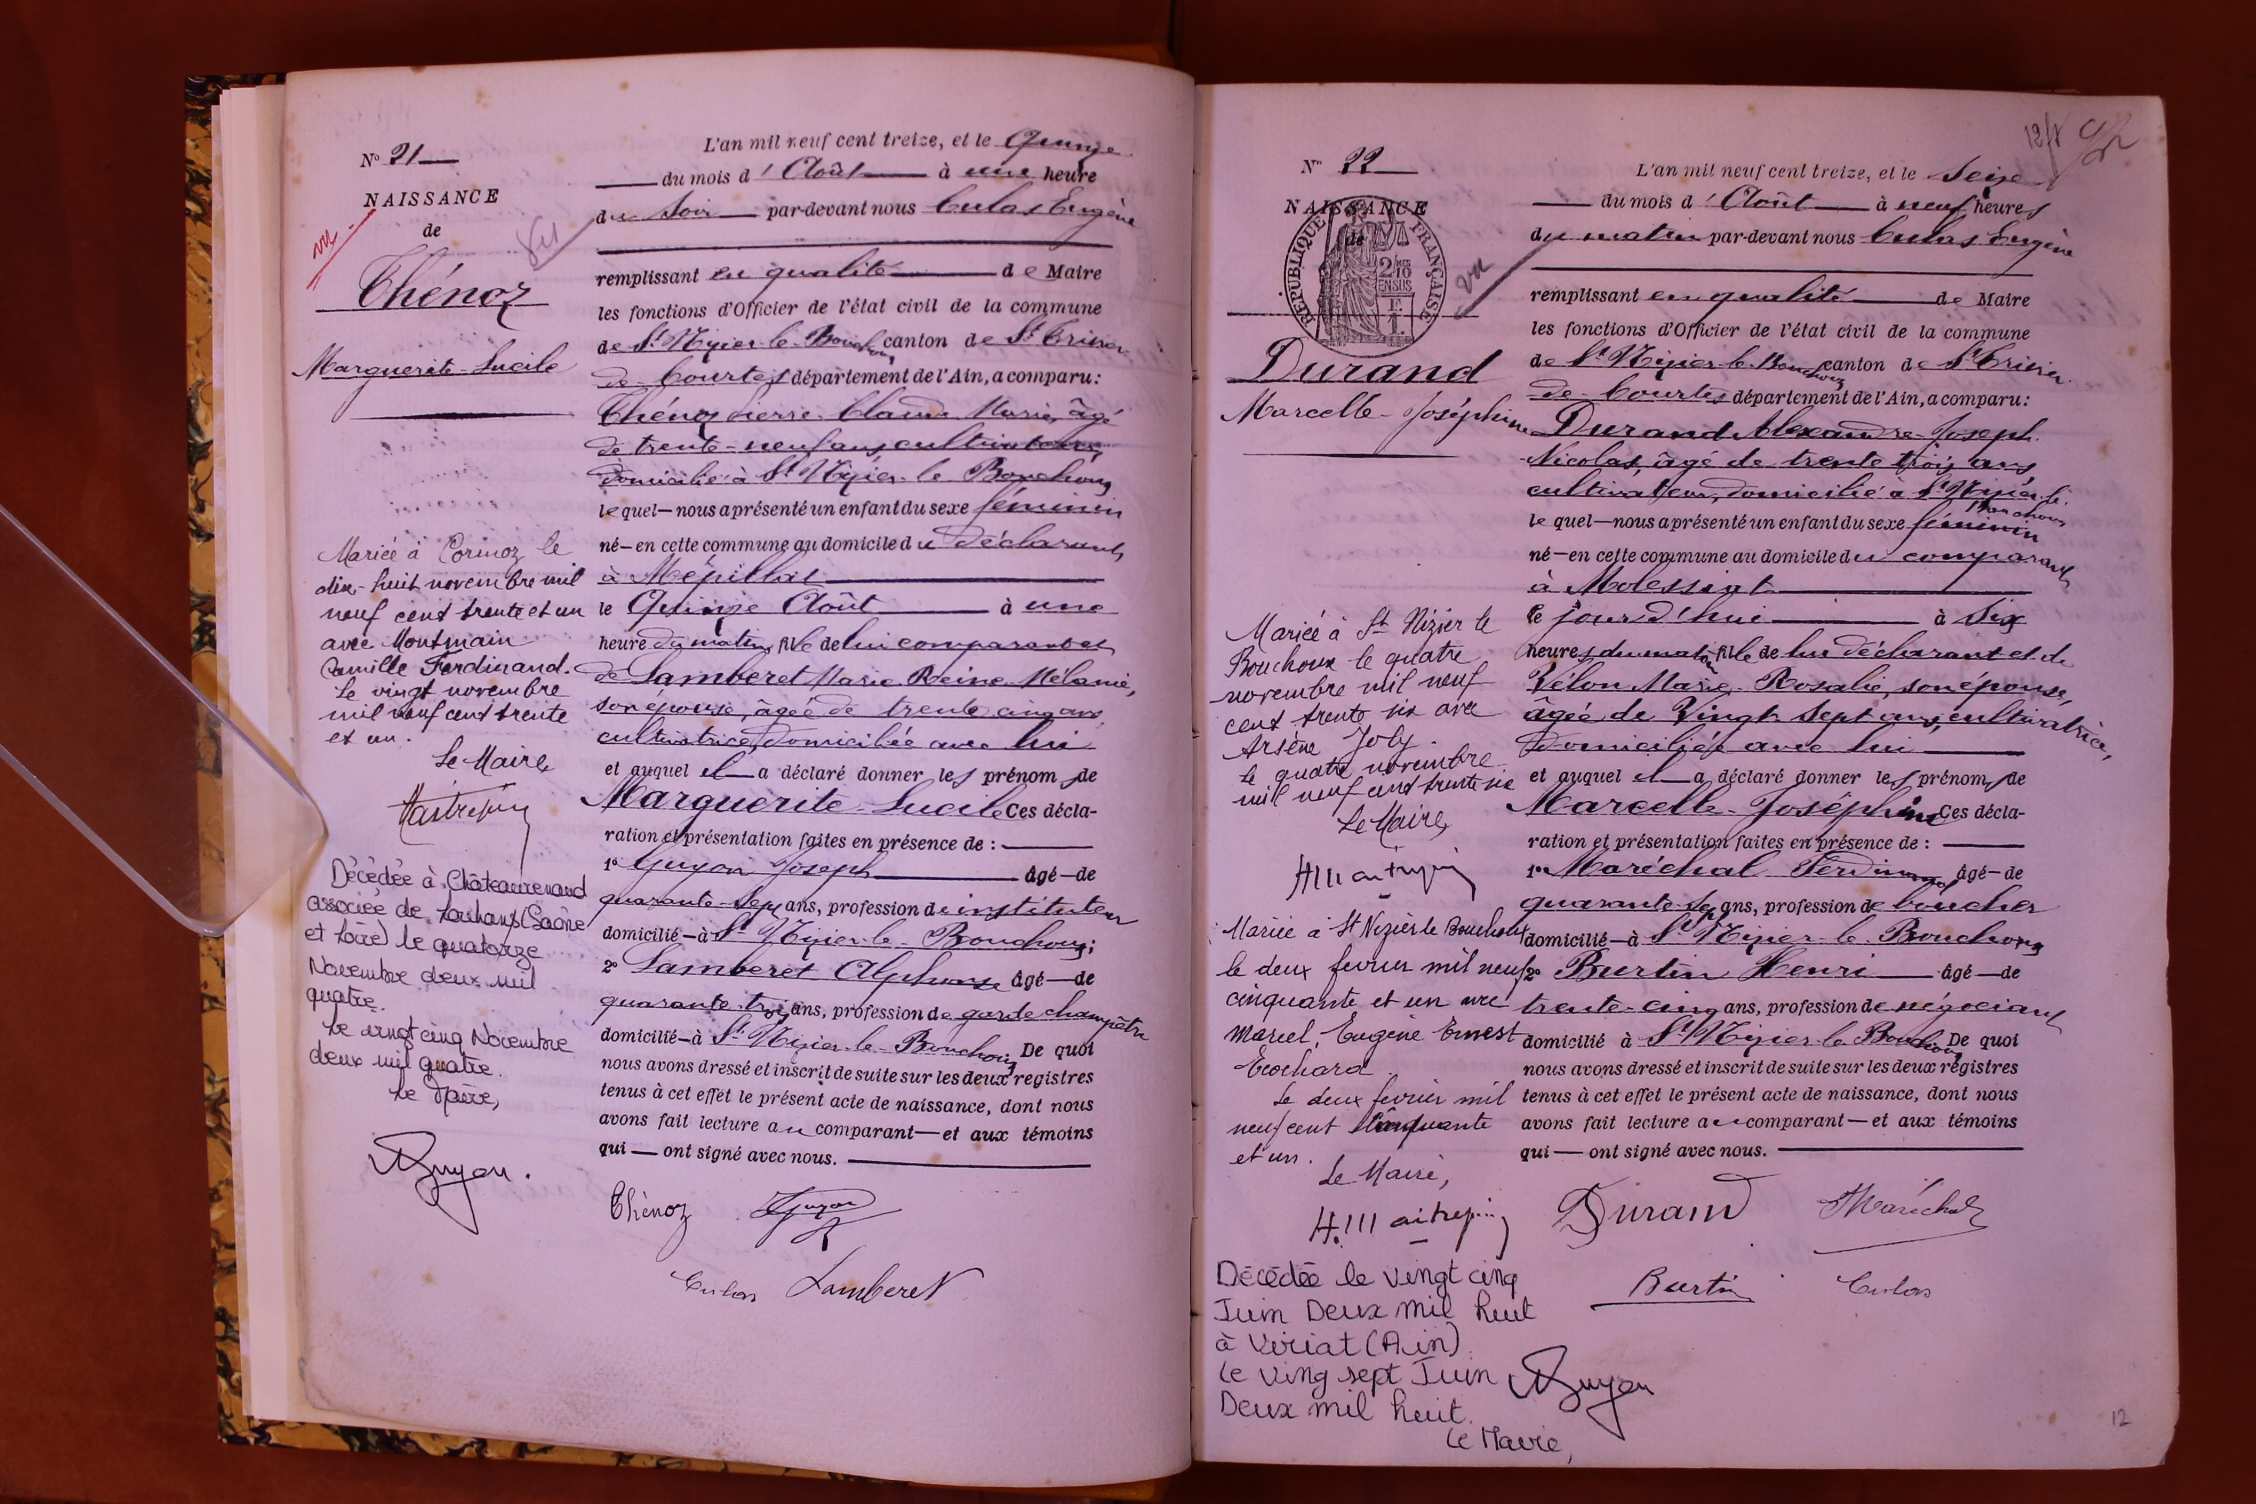 N° 21
NAISSANCE
de
Thénoz
Marguerite-Lucile
vu
Mariée à Cormoz le
dix-huit novembre mil
neuf cent trente et un
avec Montmain
Camille Ferdinand.
Le vingt novembre
mil neuf cent trente
et un.
Le Maire,
Décédée à Châteaurenaud
associée de Louhans (Saône
et Loire) le quatorze
Novembre deux mil
quatre.
Le vingt cinq Novembre
deux mil quatre.
Le Maire,
Guyon.
L'an mil neuf cent treize, et le Quinze
du mois d'Août à une heure
du Soir par-devant nous Culas Eugène
remplissant en qualité de Maire
les fonctions d'Officier de l'état civil de la commune
de St Nizier-le-Bouchoux canton de St Trivier-
de-Courtes département de l'Ain, a comparu :
Thénoz Pierre-Claude Marie, âgé
de trente-neuf ans, cultivateur,
domicilié à St Nizier-le-Bouchoux
lequel—nous a présenté un enfant du sexe féminin
né—en cette commune au domicile du déclarant,
à Mépillat
le Quinze Août à une
heure du matin, fille de lui comparant et
de Lamberet Marie Reine Mélanie,
son épouse, âgée de trente cinq ans,
cultivatrice, domiciliée avec lui
et auquel il a déclaré donner les prénoms de
Marguerite-Lucile Ces décla-
ration et présentation faites en présence de :
1° Guyon Joseph âgé—de
quarante-sept ans, profession de instituteur
domicilié—à St Nizier-le-Bouchoux;
2° Lamberet Alphonse âgé—de
quarante-trois ans, profession de garde champêtre
domicilié—à St Nizier-le-Bouchoux De quoi
nous avons dressé et inscrit de suite sur les deux registres
tenus à cet effet le présent acte de naissance, dont nous
avons fait lecture au comparant—et aux témoins
qui — ont signé avec nous.
Thénoz Guyon
Culas Lamberet
N° 22
NAISSANCE
de
RÉPUBLIQUE FRANÇAISE
2/10
EN SUS
Durand
Marcelle-Joséphine
vu
Mariée à St Nizier le
Bouchoux le quatre
novembre mil neuf
cent trente six avec
Arsène Joly.
Le quatre novembre
mil neuf cent trente six
Le Maire,
Mariée à St Nizier le Bouchoux
le deux fevrier mil neuf
cinquante et un avec
Marcel, Eugène Ernest
Ecochard
Le deux fevrier mil
neuf cent cinquante
et un.
Le Maire,
Décédée le vingt cinq
Juin Deux mil huit
à Viriat (Ain)
Le ving sept Juin
Deux mil huit.
Le Maire,
Guyon
12/8
L'an mil neuf cent treize, et le Seize
du mois d'Août à neuf heures
du matin par-devant nous Culas Eugène
remplissant en qualité de Maire
les fonctions d'Officier de l'état civil de la commune
de St Nizier-le-Bouchoux canton de St Trivier-
de-Courtes département de l'Ain, a comparu :
Durand Alexandre-Joseph-
Nicolas, âgé de trente trois ans,
cultivateur, domicilié à St Nizier-le-
Bouchoux
lequel—nous a présenté un enfant du sexe féminin
né—en cette commune au domicile du comparant,
à Molessiat
le jour d'hui à Six
heures du matin fille de lui déclarant et de
Vélon Marie-Rosalie, son épouse,
âgée de Vingt-Sept ans, cultivatrice,
domiciliée avec lui
et auquel il a déclaré donner les prénoms de
Marcelle-Joséphine Ces décla-
ration et présentation faites en présence de :
1° Maréchal Ferdinand âgé—de
quarante-sept ans, profession de boucher
domicilié—à St Nizier-le-Bouchoux
2° Burtin Henri âgé—de
trente-cinq ans, profession de négociant
domicilié à St Nizier-le-Bouchoux De quoi
nous avons dressé et inscrit de suite sur les deux registres
tenus à cet effet le présent acte de naissance, dont nous
avons fait lecture au comparant—et aux témoins
qui — ont signé avec nous.
Durand Maréchal
Burtin Culas
12